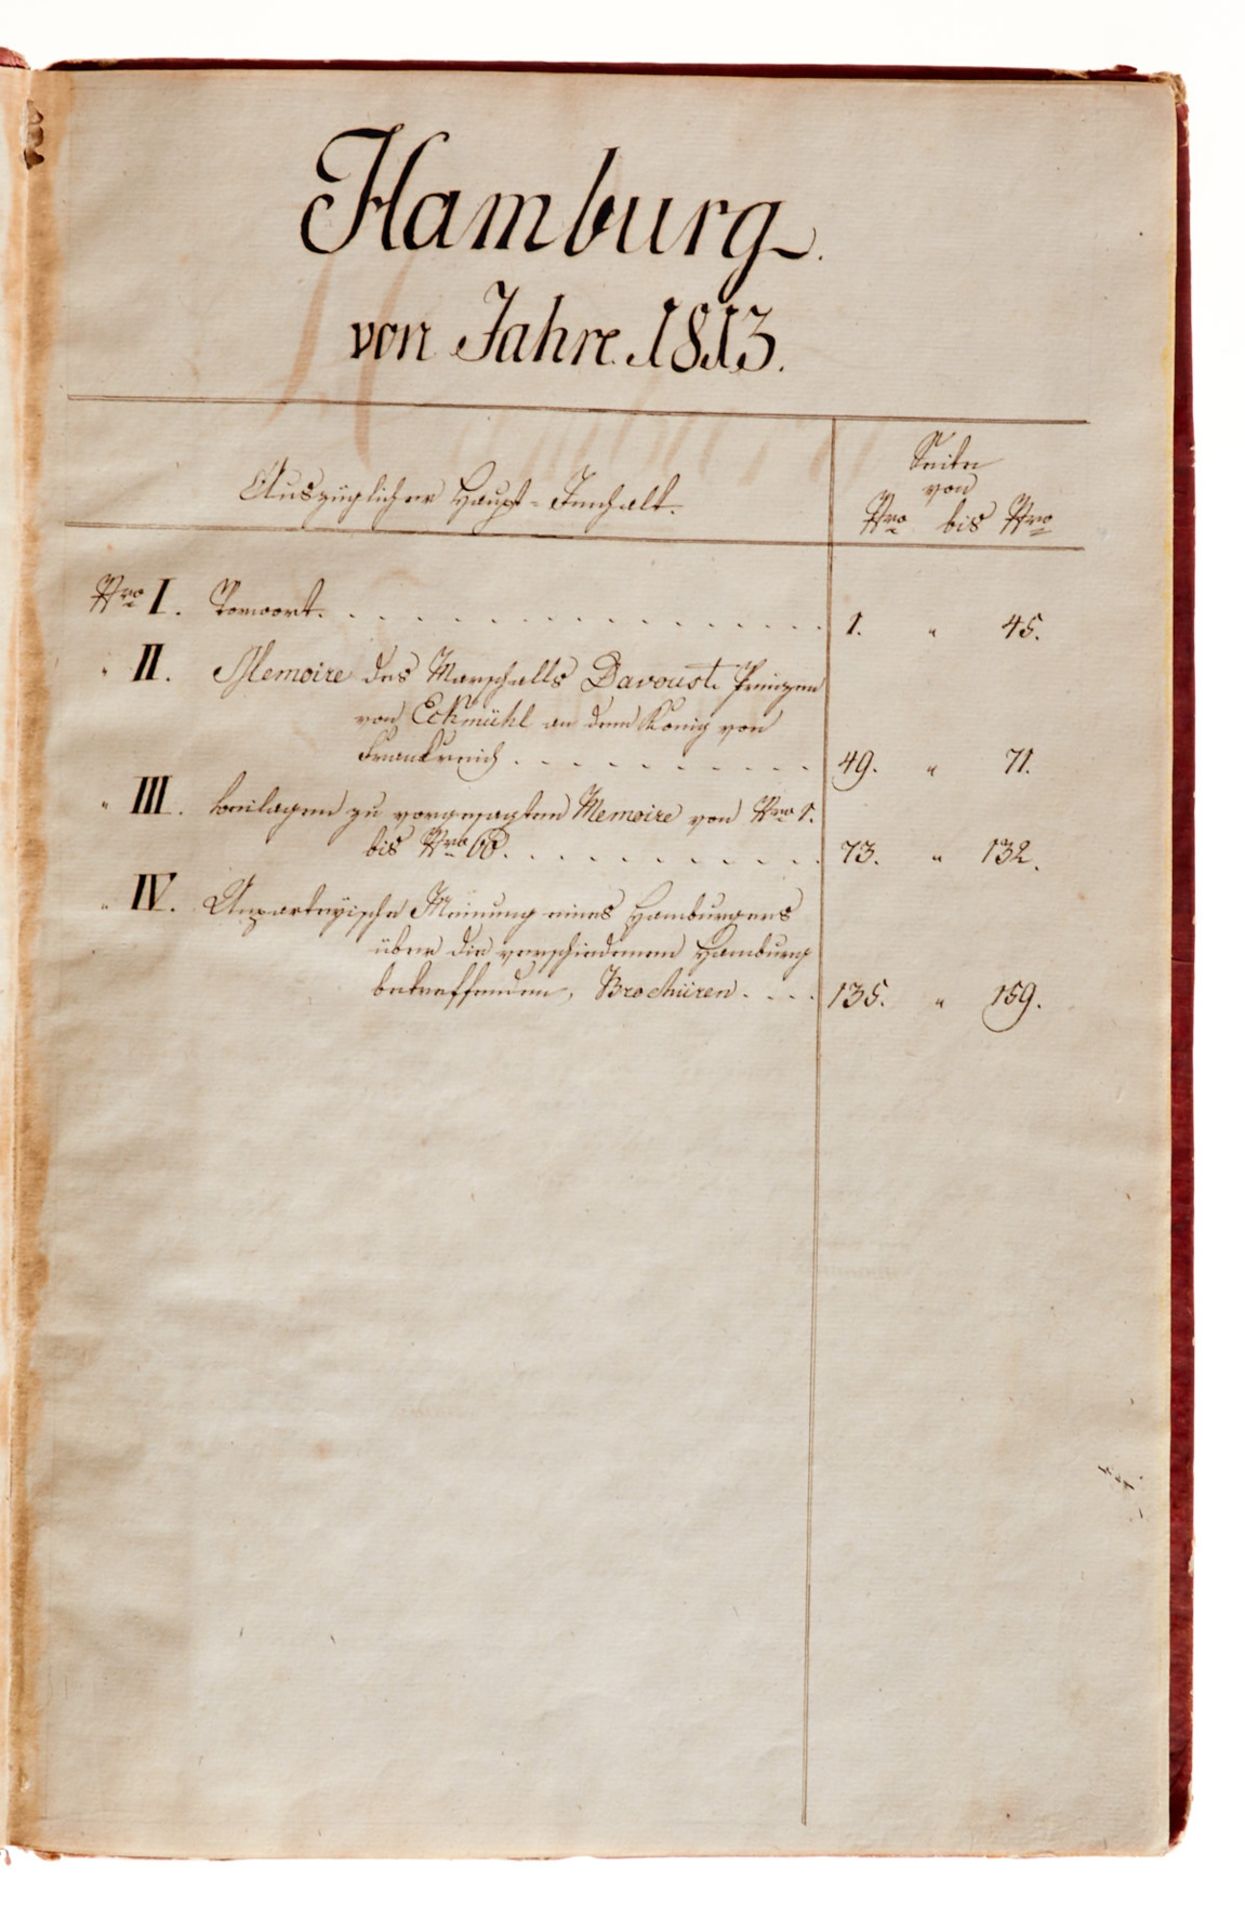 Hamburg.
von Jahre 1813.
Auszüglicher Haupt-Innhalt.
Seite
von
Nro bis Nro
Nro I. Vorwort. 1. " 45.
" II. Memoire des Marschalls Davoust Prinzen
von Eckmühl an den König von
Frankreich 49. " 71.
" III. Beilagen zu vorgesagten Memoire von Nro 1.
bis Nro 68. 73. " 132.
" IV. Unparteyische Meinung eines Hamburgers
über die verschiedenen Hamburg
betreffenden, Brochüren. 135. " 159.